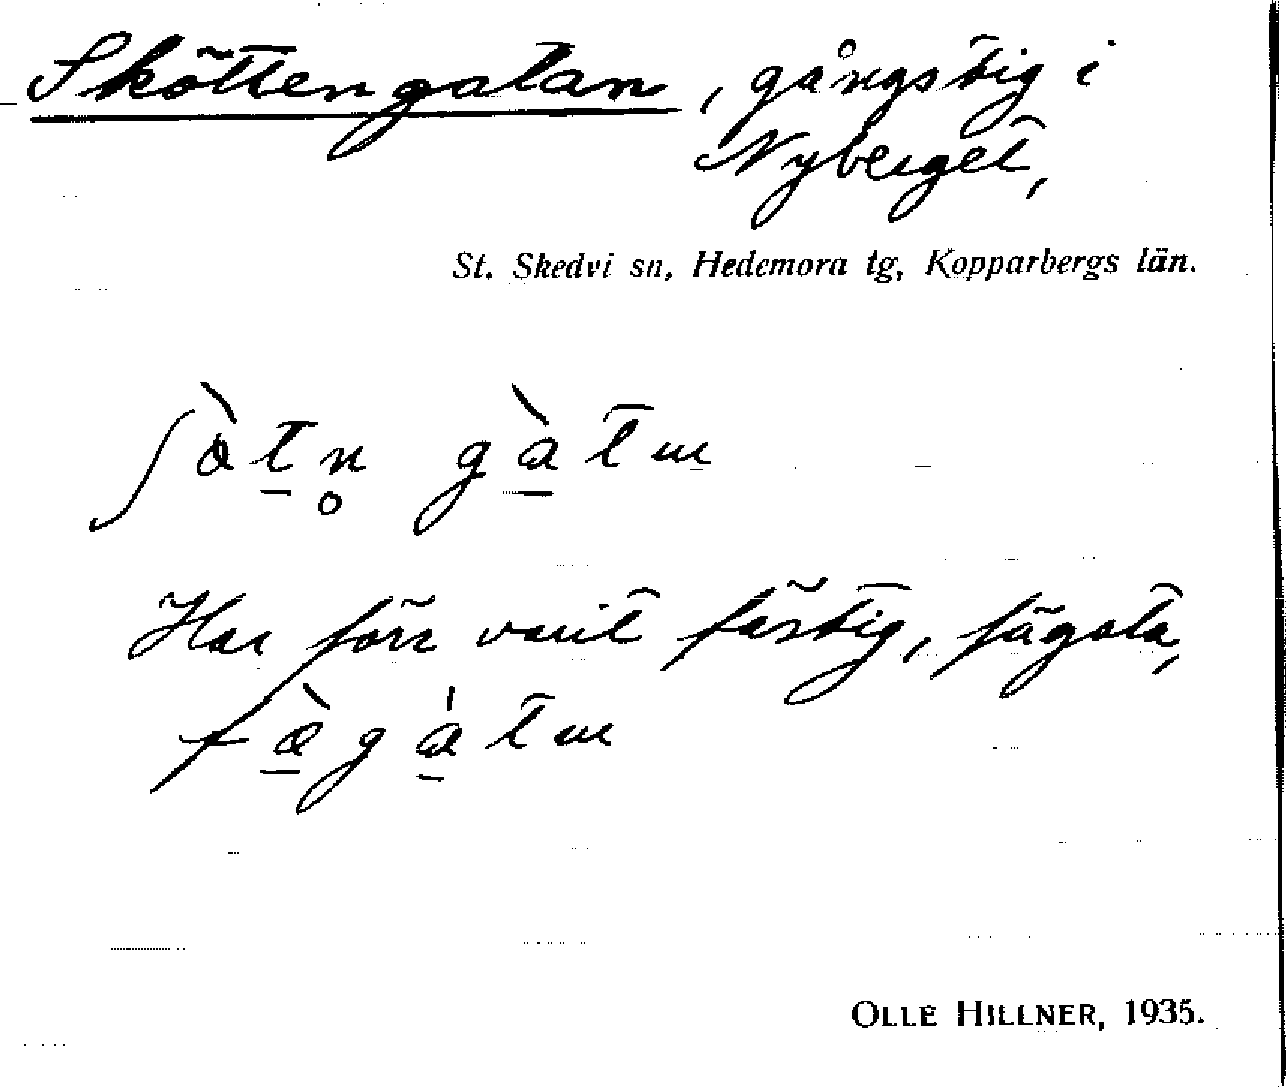 Sköttengatan, gångstig i
Nyberget,
St. Skedvi sn, Hedemora tg, Kopparbergs län.
Har förr varit fästig, fägata,
OLLE HILLNER, 1935.